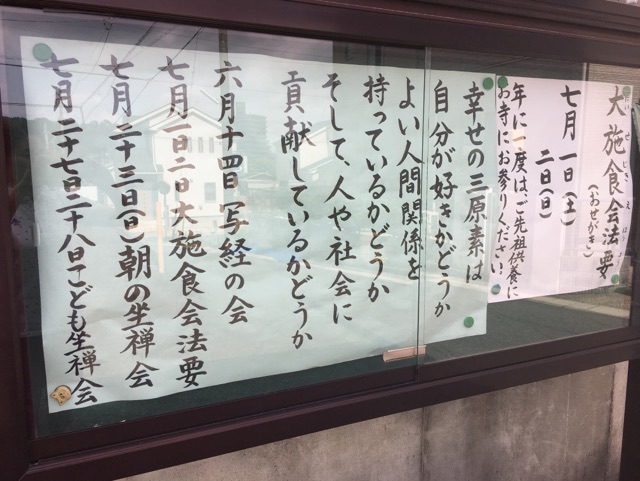 大施食会法要
(おせがき)
七月一日(土)
二日(日)
年に一度は、ご先祖供養に
お寺にお参りください。
幸せの三原素は
自分が好きかどうか
よい人間関係を
持っているかどうか
そして、人や社会に
貢献しているかどうか
六月十四日写経の会
七月一日二日大施食会法要
七月二十三(日)朝の坐禅会
七月二十七日二十八日こども坐禅会